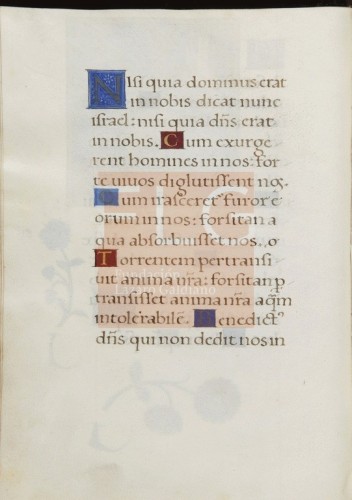 NIsi quia dominus erat
in nobis dicat nunc
israel: nisi quia dñs erat
in nobis. Cum exurge
rent homines in nos: for
te uiuos diglutissent nos.
Cum irasceret᷒ furor e
orum in nos: forsitan a
qua absorbuisset nos.
Torrentem pertransi
uit anima nr̃a: forsitan p
transisset anima nr̃a aq̃m
intolerabilē. Benedict᷒
dñs qui non dedit nos in
Fundación
Lázaro Galdiano
FLG